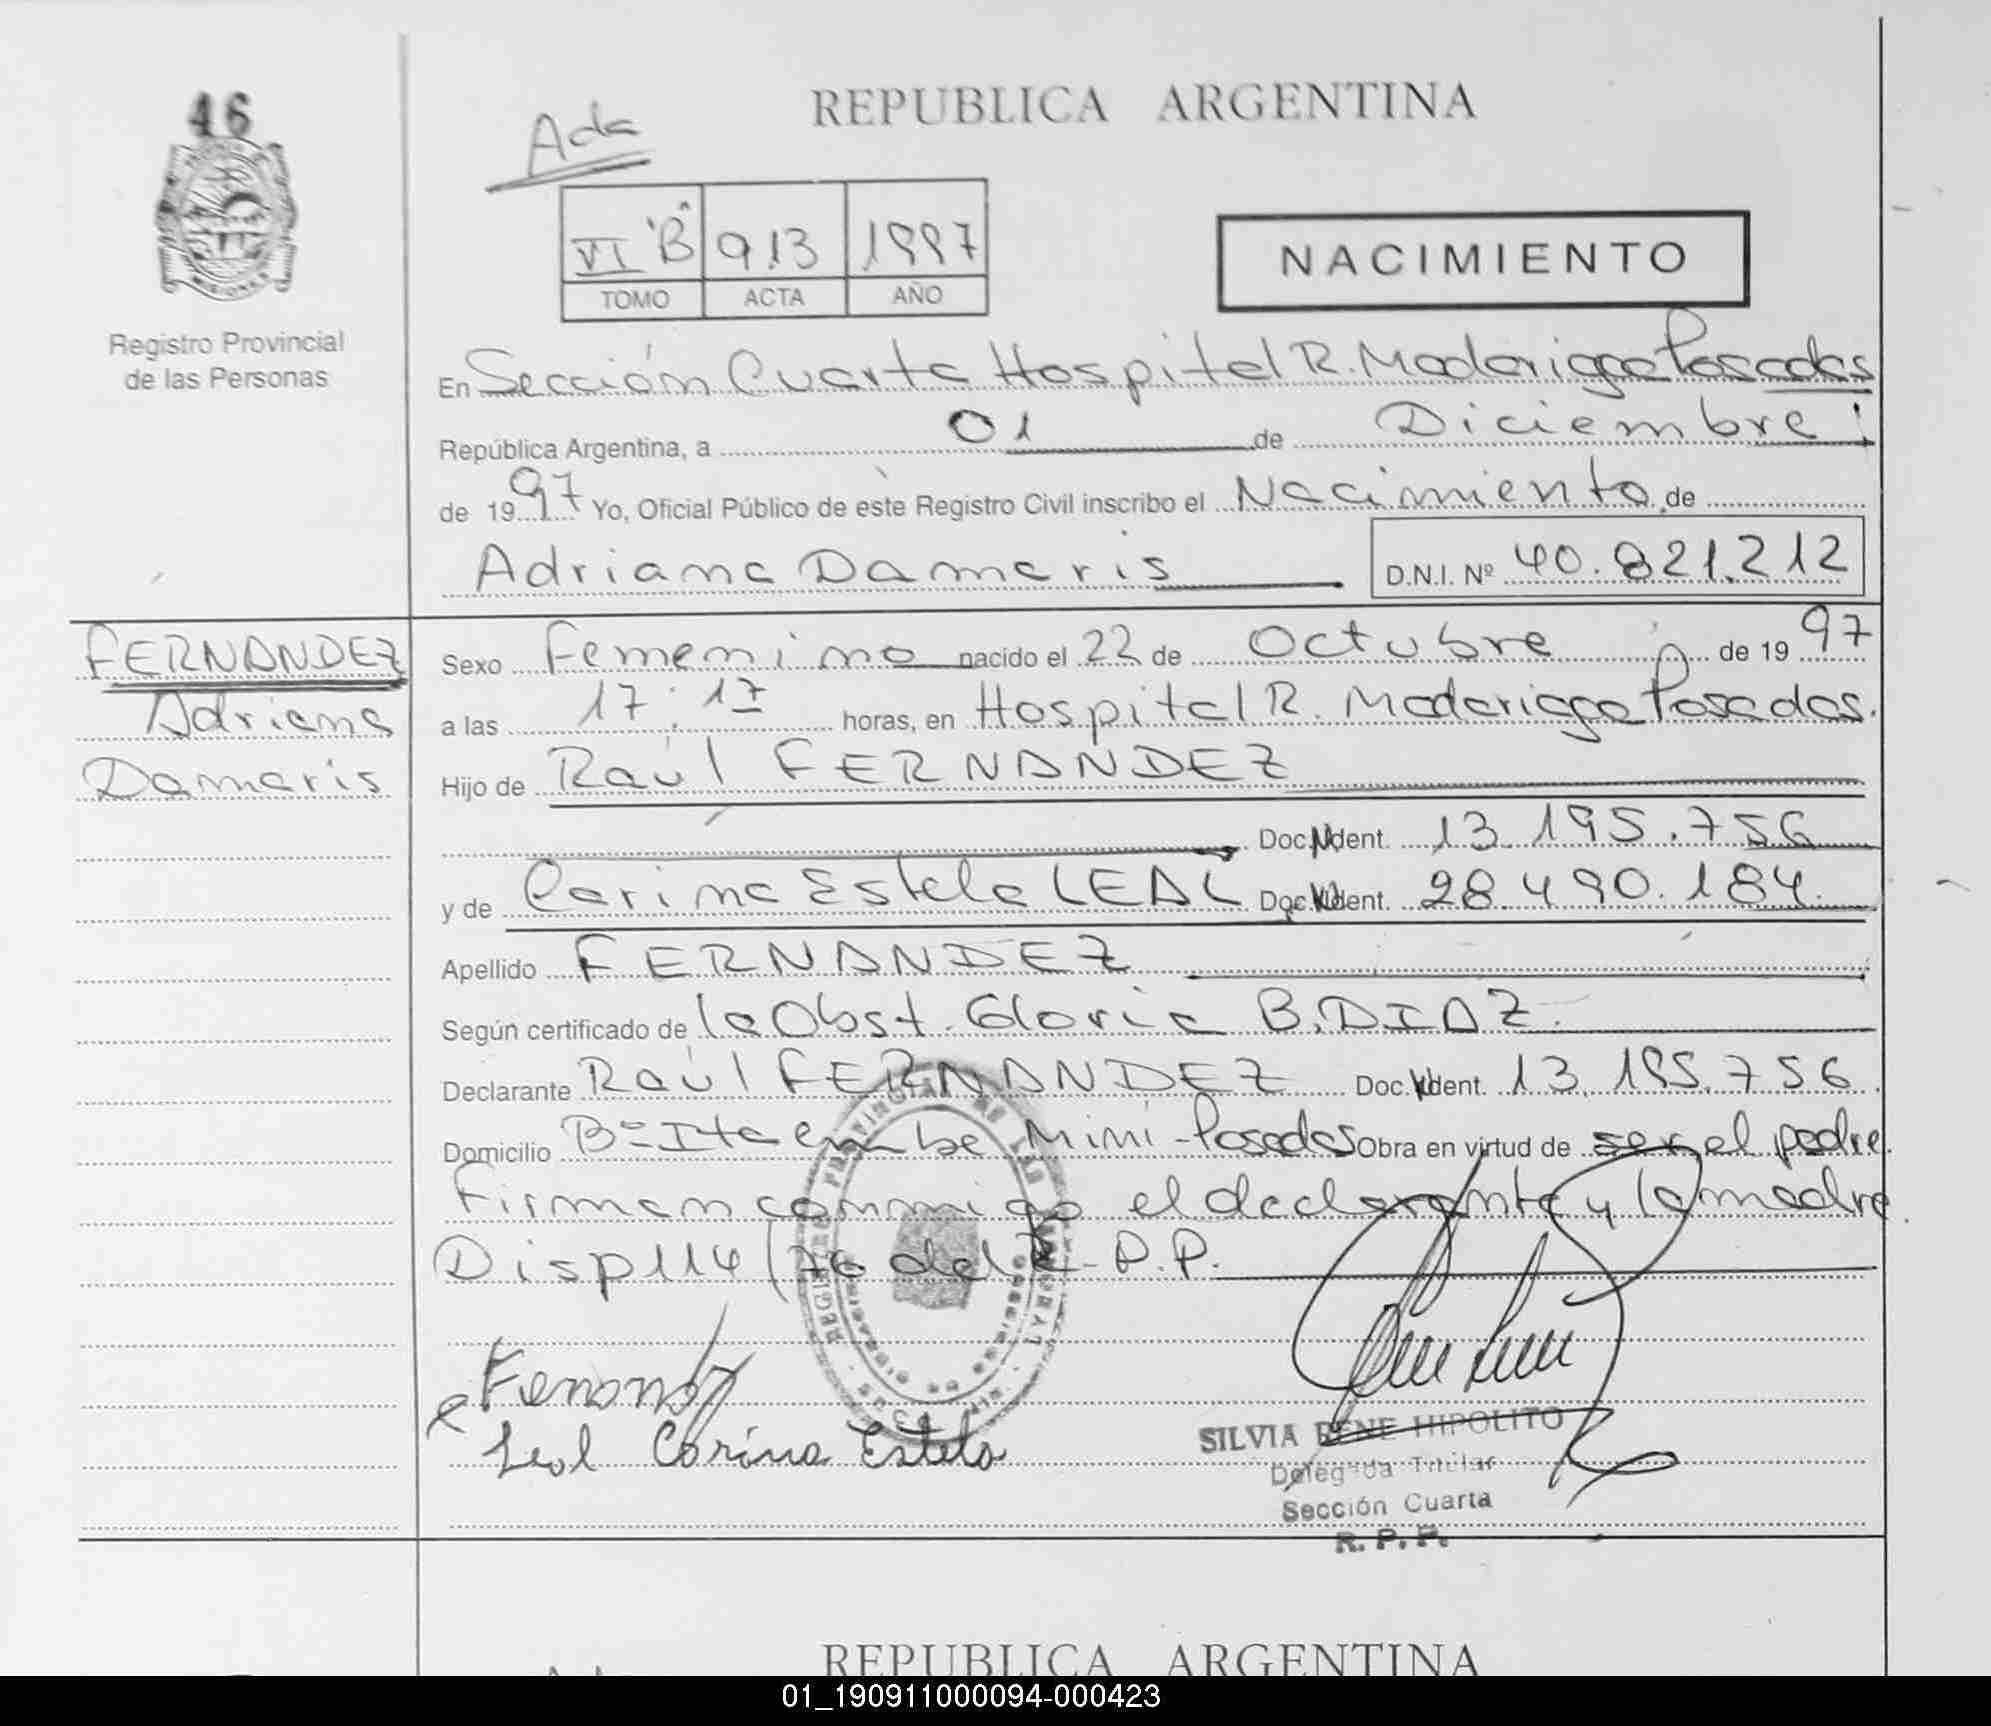 46
Registro Provincial
de las Personas
Ada
REPUBLICA ARGENTINA
VI "B" 913 1997
TOMO ACTA AÑO
NACIMIENTO
En Sección Cuarta Hospital R. Madariaga Posadas
República Argentina, a 01 de Diciembre
de 1997 Yo, Oficial Público de este Registro Civil inscribo el Nacimiento de
Adriana Damaris D.N.I. Nº 40.821.212
FERNANDEZ
Adriana
Damaris
Sexo Femenino nacido el 22 de Octubre de 1997
a las 17:17 horas, en Hospital R. Madariaga Posadas.
Hijo de Raúl FERNANDEZ
Doc. Ident. 13.195.756
y de Carina Estela LEAL Doc. Ident. 28.490.184
Apellido FERNANDEZ
Según certificado de la Obst. Gloria B. DIAZ.
Declarante Raúl FERNANDEZ Doc. Ident. 13.195.756
Domicilio Bº Itaembe Mini - Posadas Obra en virtud de ser el padre
Firman conmigo el declarante y la madre
Disp 114/76 del R.P.P.
Leal Corina Estela
SILVIA RENE HIPOLITO
Delegada Titular
Sección Cuarta
R. P. P.
REPUBLICA ARGENTINA
01_190911000094-000423